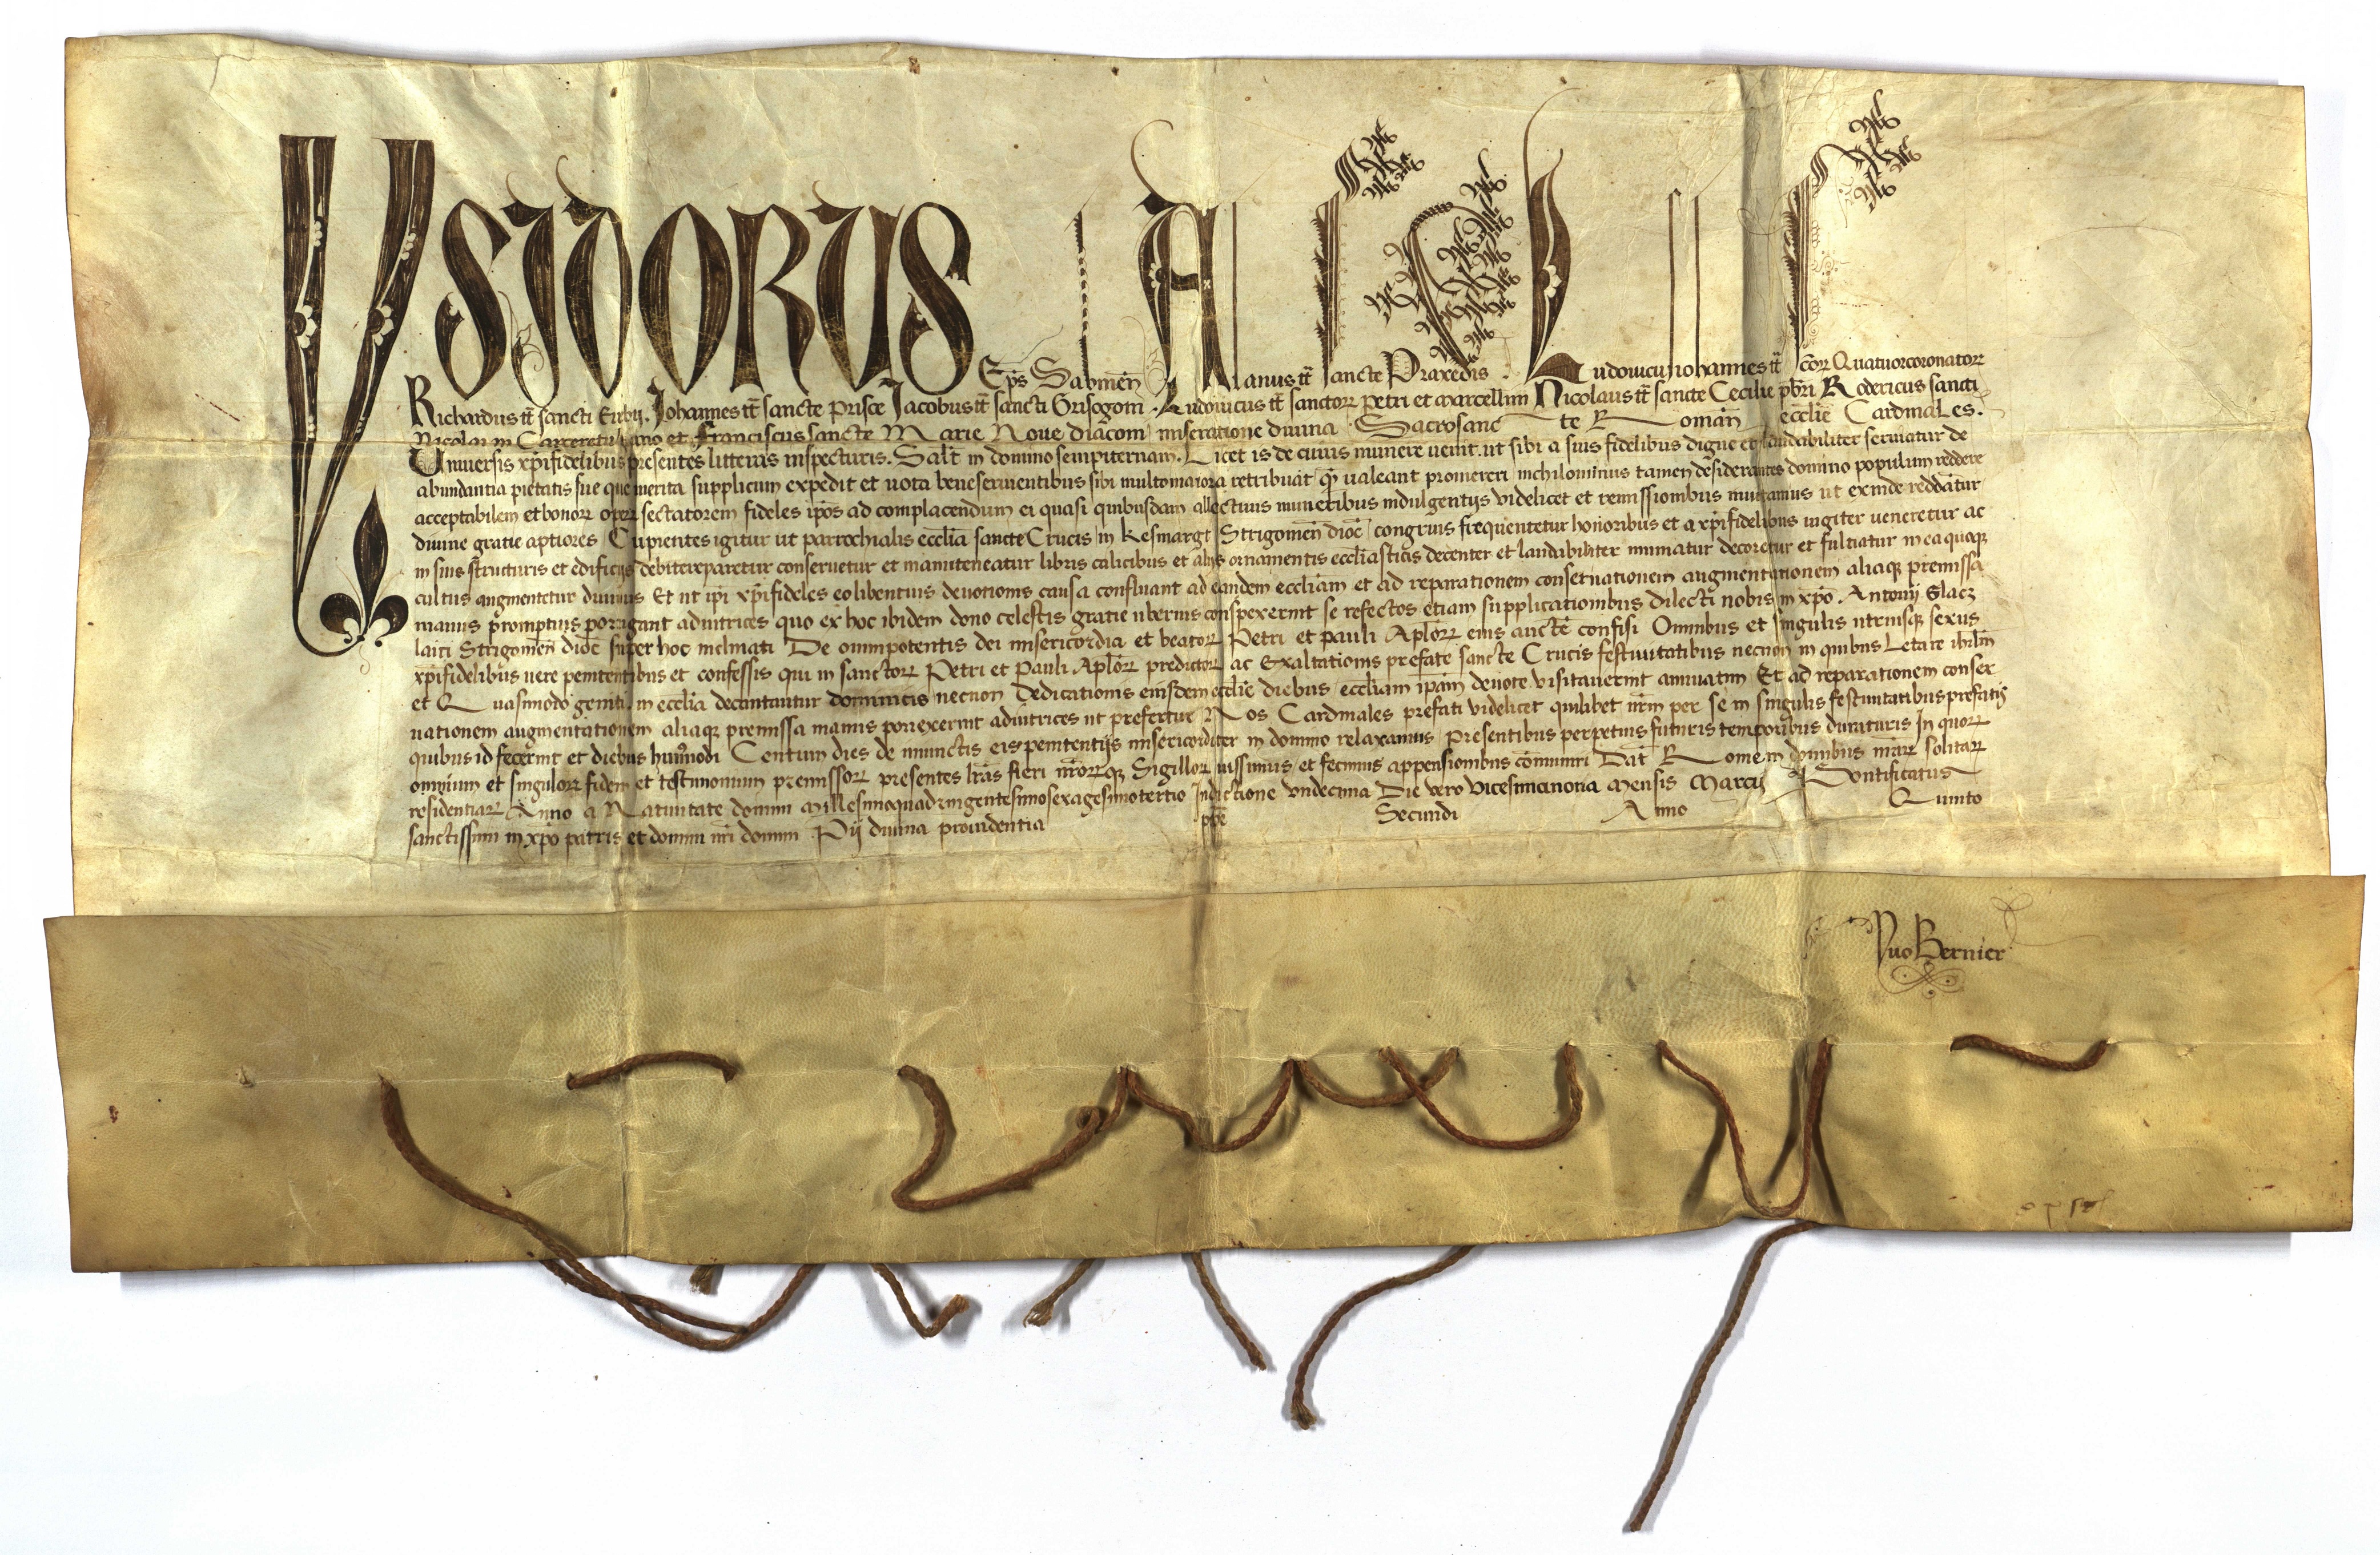 YSIDORUS Ep̄s Sabineñ Alanus tt̄ sancte Praxedis . Ludovicus Johannes tt̄ scōꝝ Quatuorcoronatoꝝ
Richardus tt̄ sancti Eusbij. Johannes tt̄ sancte prisce Jacobus tt̄ sancti Grisogoni . Ludovicus tt̄ sanctoꝝ petri et marcellini Nicolaus tt̄ sancte Cecilie pb̄ri Rodericus sancti
Nicolai in Carceretulliano et Franciscus sancte Marie Noue diacōni miseratione diuina Sacrosancte Romāñ ecclīe Cardinales.
Uniuersis xp̄ifidelibus presentes litteras inspecturis. Salt̄ in domino sempiternam. Licet is de cuius munere uenit. ut sibi a suis fidelibus digne et laudabiliter seruiatur de
abundantia pietatis sue que merita supplicum expedit et uota beneseruientibus sibi multomaiora retribuāt qͣ̄ ualeant promereri nichilominus tamen desiderantes domino populum reddere
acceptabilem et bonoꝝ opeꝝ sectatorem fideles ip̄os ad complacendum ei quasi quibusdam allectiuis muneribus indulgentijs videlicet et remissionibus inuitamus ut exinde reddātur
diuine gratie aptiores Cupientes igitur ut parrochialis ecclīa sancte Crucis in Kesmargt Strigoneñ dioc̄ congruis frequentetur honoribus et a xp̄ifidelibus iugiter ueneretur ac
in suis structuris et edificijs debitereparetur conseruetur et manuteneatur libris calicibus et alijs ornamentis ecclīasticis decenter et laudabiliter muniatur decoretur et fulciatur in ea quoqꝫ
cultus augmentetur diuinus Et ut ip̄i xp̄ifideles eo libentius deuotionis causa confluant ad eandem eccliāam et ad reparationem conseruationem augmentationem aliaqꝫ premissa
manus promptius porrigant adiutrices quo ex hoc ibidem dono celestis gratie uberius conspexerint se refectos etiam supplicationibus dilecti nobis in xp̄o . Antonij Glacz
laici Strigoneñ dioc̄ super hoc inclinati De omnipotentis dei misericordia et beatoꝝ Petri et pauli Ap̄loꝝ eius aucte̅ confisi Omnibus et singulis utriusqꝫ sexus
xp̄ifidelibus uere penitentibus et confessis qui in sanctoꝝ Petri et Pauli Ap̄loꝝ predictoꝝ ac Exaltationis prefate sancte Crucis festiuitatibus necnon in quibus Letare ih̄rlm̄
et Quasimodo geniti in ecclīa decantantur dominicis necnon Dedicationis eiusdem ecclīe diebus ecclīam ip̄am deuote visitauerint annuatim Et ad reparationem conser
uationem augmentationem aliaqꝫ premissa manus porrexerint adiutrices ut prefertur Nos Cardinales prefati videlicet quilibet nr̄m per se in singulis festiuitatibus prefatis
quibus id fecerint et diebus huiusmodi Centum dies de iniunctis eis penitentijs misericorditer in domino relaxamus Presentibus perpetuis futuris temporibus duraturis In quoꝝ
omnium et singuloꝝ fidem et testimonium premissoꝝ presentes lr̄as fieri nr̄oꝝqꝫ Sigilloꝝ iussimus et fecimus appensionibus cōmuniri Dat̄ Rome in domibus nr̄aꝝ solitaꝝ
residentiaꝝ Anno a Natiuitate domini millesimoquadringentesimosexagesimotertio Indictione undecima Die vero vicesimanona mensis Marcij Pontificatus
sanctissimi in xp̄o patris et domini nr̄i domini Pij diuina prouidentia pp̄e Secundi Anno Quinto
Yuo Bernier